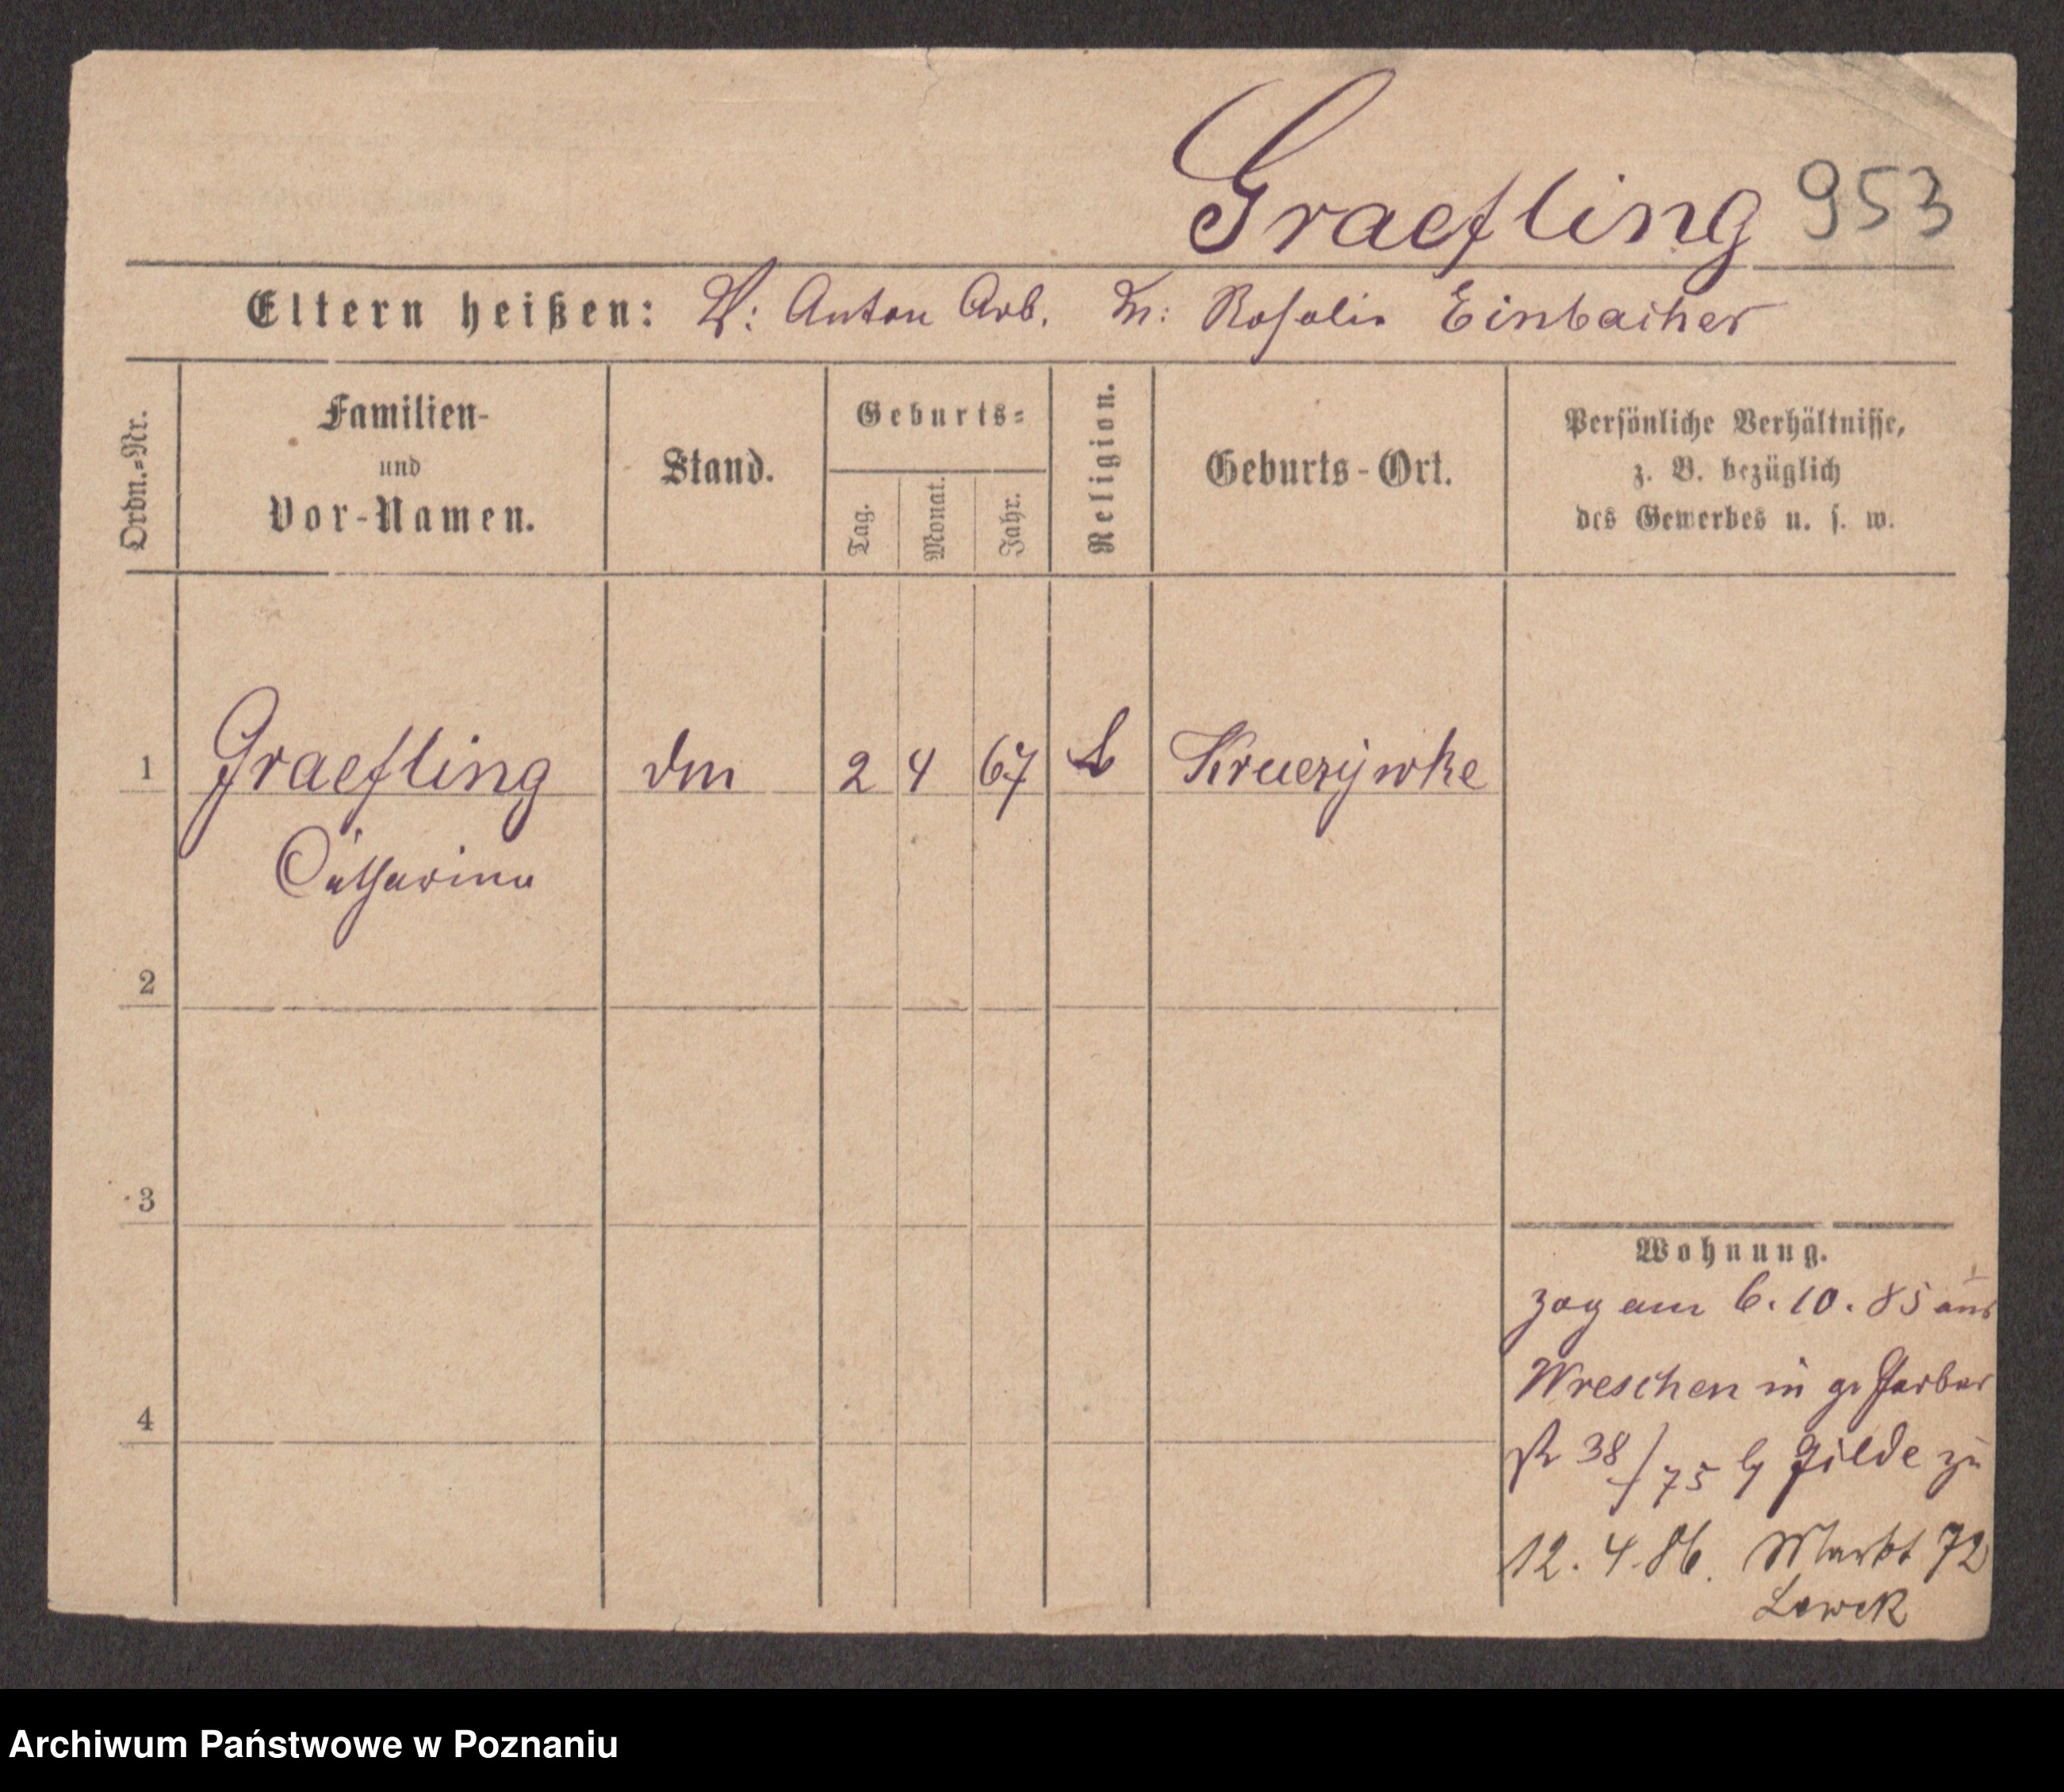 Graefling 953
Eltern heißen: V: Anton Arb. M: Rosalie Einbacher
Ordn.-Nr.
Familien-
und
Vor-Namen.
Stand.
Geburts-
Tag.
Monat.
Jahr.
Religion.
Geburts-Ort.
Persönliche Verhältnisse,
z. B. bezüglich
des Gewerbes u. s. w.
1 Graefling 2 4 67
Catharina
2
3
4
Wohnung.
zog am 6. 10. 85 aus
Wreschen in gr Gerber
str 38/75 Gilde zu
12. 4. 86. Markt 72
Archiwum Państwowe w Poznaniu